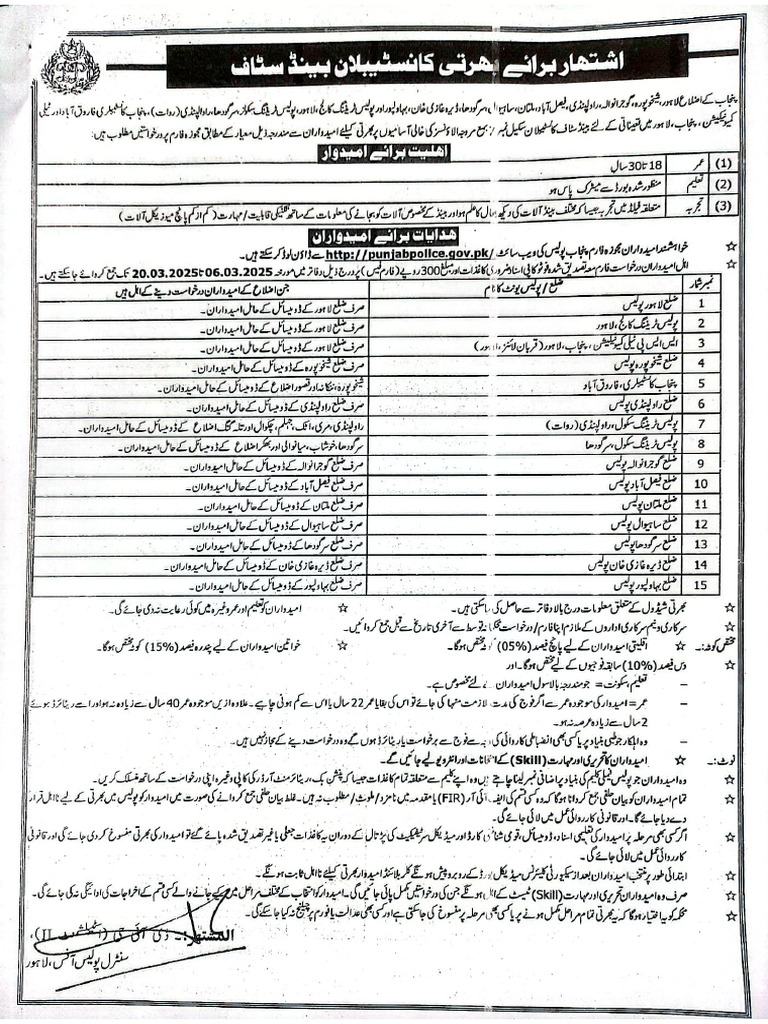 اشتہار برائے بھرتی کانسٹیبلان بینڈ سٹاف
پنجاب کے اضلاع لاہور، شیخوپورہ، گوجرانوالہ، راولپنڈی، فیصل آباد، ملتان، ساہیوال، سرگودھا، ڈیرہ غازی خان، بہاولپور اور پولیس ٹریننگ کالج، لاہور، پولیس ٹریننگ سکولز، سرگودھا، راولپنڈی (روات)، پنجاب کانسٹیبلری فاروق آباد اور ٹیلی
کمیونیکیشن، پنجاب، لاہور میں تعیناتی کے لئے بینڈ سٹاف کانسٹیبلان سکیل نمبر 7 بمع مروجہ الاؤنسز کی خالی آسامیوں پر بھرتی کیلئے امیدواران سے مندرجہ ذیل معیار کے مطابق مجوزہ فارم پر درخواستیں مطلوب ہیں:
اہلیت برائے امیدوار
(1) عمر 18 تا 30 سال
(2) تعلیم منظور شدہ بورڈ سے میٹرک پاس ہو
(3) تجربہ متعلقہ فیلڈ میں تجربہ جیسا کہ مختلف بینڈ آلات کی دیکھ بھال کا علم ہو اور بینڈ کے مخصوص آلات کو بجانے کی معلومات کے ساتھ تکنیکی قابلیت / مہارت (کم از کم پانچ میوزیکل آلات)
ہدایات برائے امیدواران
☆ خواہشمند امیدواران مجوزہ فارم پنجاب پولیس کی ویب سائٹ http://punjabpolice.gov.pk/ سے ڈاؤن لوڈ کر سکتے ہیں۔
☆ اہل امیدواران درخواست فارم معہ تصدیق شدہ فوٹو کاپی اسناد ضروری کاغذات اور مبلغ 300 روپے (فارم فیس) پر درج ذیل دفاتر میں مورخہ 06.03.2025 تا 20.03.2025 تک جمع کروائے جا سکتے ہیں۔
نمبر شمار ضلع / پولیس یونٹ کا نام جن اضلاع کے امیدواران درخواست دینے کے اہل ہیں
1 ضلع لاہور پولیس صرف ضلع لاہور کے ڈومیسائل کے حامل امیدواران۔
2 پولیس ٹریننگ کالج، لاہور صرف ضلع لاہور کے ڈومیسائل کے حامل امیدواران۔
3 ایس ایس پی ٹیلی کمیونیکیشن، پنجاب، لاہور (قربان لائنز، لاہور) صرف ضلع لاہور کے ڈومیسائل کے حامل امیدواران۔
4 ضلع شیخوپورہ پولیس صرف ضلع شیخوپورہ کے ڈومیسائل کے حامل امیدواران۔
5 پنجاب کانسٹیبلری، فاروق آباد شیخوپورہ، ننکانہ اور قصور اضلاع کے ڈومیسائل کے حامل امیدواران۔
6 ضلع راولپنڈی پولیس صرف ضلع راولپنڈی کے ڈومیسائل کے حامل امیدواران۔
7 پولیس ٹریننگ سکول، راولپنڈی (روات) راولپنڈی، مری، اٹک، جہلم، چکوال اور تلہ گنگ اضلاع کے ڈومیسائل کے حامل امیدواران۔
8 پولیس ٹریننگ سکول، سرگودھا سرگودھا، خوشاب، میانوالی اور بھکر اضلاع کے ڈومیسائل کے حامل امیدواران۔
9 ضلع گوجرانوالہ پولیس صرف ضلع گوجرانوالہ کے ڈومیسائل کے حامل امیدواران۔
10 ضلع فیصل آباد پولیس صرف ضلع فیصل آباد کے ڈومیسائل کے حامل امیدواران۔
11 ضلع ملتان پولیس صرف ضلع ملتان کے ڈومیسائل کے حامل امیدواران۔
12 ضلع ساہیوال پولیس صرف ضلع ساہیوال کے ڈومیسائل کے حامل امیدواران۔
13 ضلع سرگودھا پولیس صرف ضلع سرگودھا کے ڈومیسائل کے حامل امیدواران۔
14 ضلع ڈیرہ غازی خان پولیس صرف ضلع ڈیرہ غازی خان کے ڈومیسائل کے حامل امیدواران۔
15 ضلع بہاولپور پولیس صرف ضلع بہاولپور کے ڈومیسائل کے حامل امیدواران۔
☆ بھرتی شیڈول کے متعلق معلومات درج بالا دفاتر سے حاصل کی جا سکتی ہیں۔ ☆ امیدواران کو تعلیم اور عمر وغیرہ میں کوئی رعایت نہ دی جائے گی۔
☆ سرکاری و نیم سرکاری اداروں کے ملازم اپنا فارم / درخواست محکمانہ توسط سے آخری تاریخ سے قبل جمع کروائیں۔
مختص کوٹہ:۔ ☆ اقلیتی امیدواران کے لیے پانچ فیصد (05%) کوٹہ مختص ہوگا۔ ☆ خواتین امیدواران کے لیے پندرہ فیصد (15%) کوٹہ مختص ہوگا۔
☆ دس فیصد (10%) سابقہ فوجیوں کے لیے مختص ہوگا۔ اور
– تعلیم، سکونت = جو مندرجہ بالا سول امیدواران کے لئے مخصوص ہے۔
– عمر = امیدوار کی موجودہ عمر سے اگر فوج کی مدت ملازمت منہا کی جائے تو اس کی بقایا عمر 22 سال یا اس سے کم ہونی چاہیے۔ علاوہ ازیں موجودہ عمر 40 سال سے زیادہ نہ ہو اور اسے ریٹائرڈ ہوئے
2 سال سے زیادہ عرصہ نہ ہو۔
– وہ اہلکار جو طبی بنیاد پر یا کسی بھی انضباطی کاروائی کی وجہ سے فوج سے برخواست یا ریٹائرڈ ہوں گے وہ درخواست دینے کے مجاز نہیں ہیں۔
نوٹ:۔ ☆ امیدواران کا تحریری اور مہارت (Skill) کے امتحانات اور انٹرویو لیے جائے گے۔
☆ وہ امیدواران جو پولیس فیملی کلیم کی بنیاد پر اضافی نمبر لینا چاہتے ہیں وہ اپنے کلیم سے متعلقہ تمام کاغذات جیسا کہ پنشن بک، ریٹائرمنٹ آرڈر کی کاپی وغیرہ اپنی درخواست کے ساتھ منسلک کریں۔
☆ تمام امیدواران کو بیان حلفی جمع کروانا ہوگا کہ وہ کسی قسم کی ایف آئی آر (FIR) یا مقدمہ میں نامزد / ملوث / مطلوب نہ ہیں۔ غلط بیان حلفی جمع کروانے کی صورت میں امیدوار کو پولیس میں بھرتی کے لیے نا اہل قرار
دے دیا جائے گا۔ اور قانونی کاروائی عمل میں لائی جائے گی۔
☆ اگر کسی بھی مرحلہ پر امیدوار کی تعلیمی اسناد، ڈومیسائل، قومی شناختی کارڈ اور میڈیکل سرٹیفکیٹ کی پڑتال کے دوران یہ کاغذات جعلی یا غیر تصدیق شدہ پائے گئے تو امیدوار کی بھرتی منسوخ کر دی جائے گی اور قانونی
کارروائی عمل میں لائی جائے گی۔
☆ ابتدائی طور پر منتخب امیدواران بعد از سیکیورٹی کلیئرنس میڈیکل بورڈ کے روبرو پیش ہونگے کلر بلائنڈ امیدوار بھرتی کیلئے نا اہل ثابت ہونگے۔
☆ صرف وہ امیدواران تحریری اور مہارت (Skill) ٹیسٹ کے اہل ہونگے جن کی درخواستیں مکمل پائی جائیں گی۔ امیدوار کو انتخاب کے مختلف مراحل میں کیے جانے والے کسی قسم کے اخراجات کی ادائیگی نہ کی جائے گی۔
☆ محکمہ کو یہ اختیار ہوگا کہ یہ بھرتی تمام مراحل مکمل ہونے پر یا کسی بھی مرحلہ پر منسوخ کی جا سکتی ہے اور کسی بھی عدالت یا فورم پر چیلنج نہ کیا جا سکے گی۔
المشتہر:۔ ڈی آئی جی (اسٹیبلشمنٹ II)،
سنٹرل پولیس آفس، لاہور